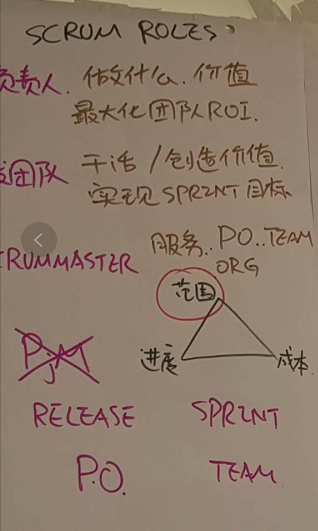 SCRUM ROLES:
负责人. 做什么. 价值
最大化团队ROI.
团队 干活 / 创造价值.
实现 SPRINT 目标
RUMMASTER 服务.. PO.. TEAM
ORG
范围
进度 成本
PjM
RELEASE SPRINT
P.O. TEAM